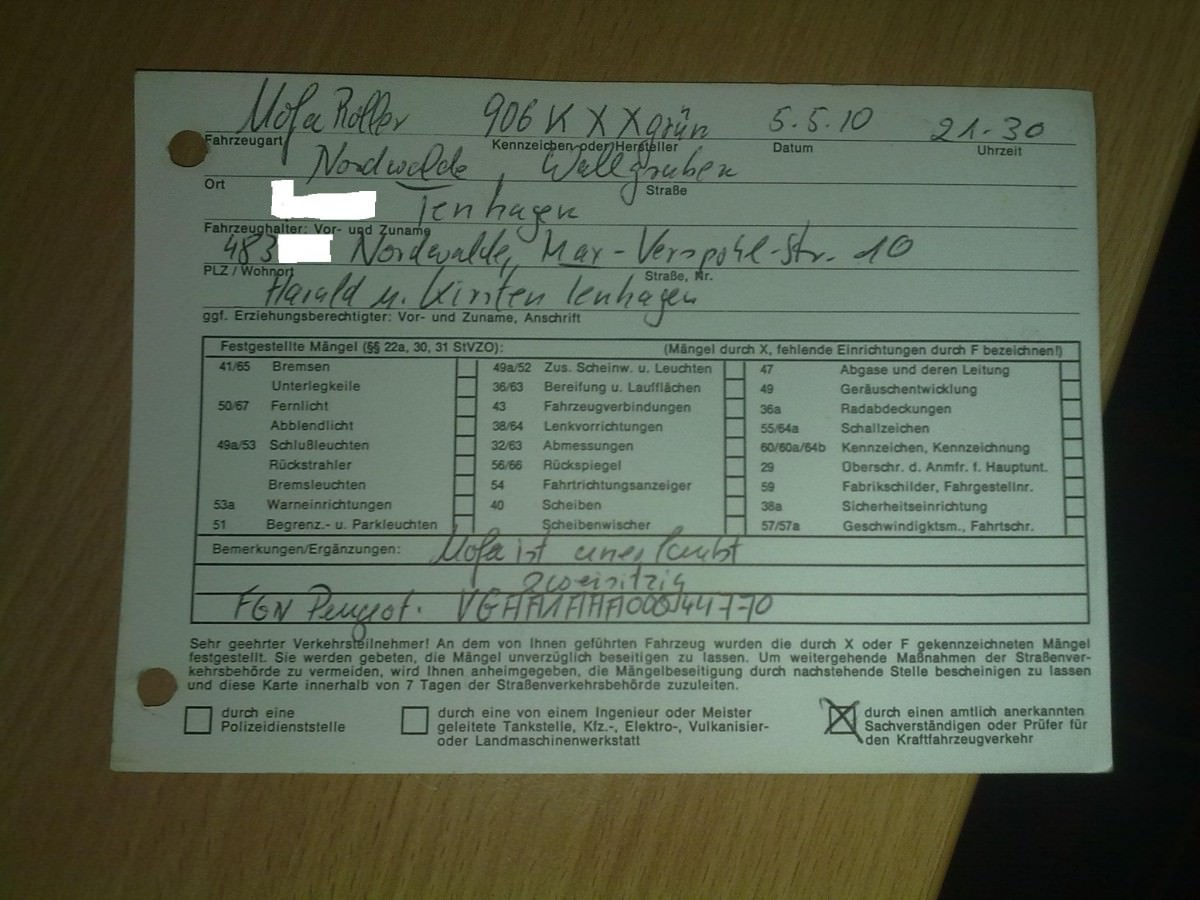 Mofa Roller 906 K X X grün 5.5.10 21.30
Fahrzeugart Kennzeichen oder Hersteller Datum Uhrzeit
Nordwalde, Wallgraben
Ort Straße
Tenhagen
Fahrzeughalter: Vor- und Zuname
483 Nordwalde, Max-Verspohl-Str. 10
PLZ / Wohnort Straße, Nr.
Harald u. Kirsten Tenhagen
ggf. Erziehungsberechtigter: Vor- und Zuname, Anschrift
Festgestellte Mängel (§§ 22a, 30, 31 StVZO): (Mängel durch X, fehlende Einrichtungen durch F bezeichnen!)
41/65 Bremsen 49a/52 Zus. Scheinw. u. Leuchten 47 Abgase und deren Leitung
Unterlegkeile 36/63 Bereifung u. Laufflächen 49 Geräuschentwicklung
50/67 Fernlicht 43 Fahrzeugverbindungen 36a Radabdeckungen
Abblendlicht 38/64 Lenkvorrichtungen 55/64a Schallzeichen
49a/53 Schlußleuchten 32/63 Abmessungen 60/60a/64b Kennzeichen, Kennzeichnung
Rückstrahler 56/66 Rückspiegel 29 Überschr. d. Anmfr. f. Hauptunt.
Bremsleuchten 54 Fahrtrichtungsanzeiger 59 Fabrikschilder, Fahrgestellnr.
53a Warneinrichtungen 40 Scheiben 38a Sicherheitseinrichtung
51 Begrenz.- u. Parkleuchten Scheibenwischer 57/57a Geschwindigktsm., Fahrtschr.
Bemerkungen/Ergänzungen: Mofa ist unerlaubt
zweisitzig
FGN Peugeot.
Sehr geehrter Verkehrsteilnehmer! An dem von Ihnen geführten Fahrzeug wurden die durch X oder F gekennzeichneten Mängel
festgestellt. Sie werden gebeten, die Mängel unverzüglich beseitigen zu lassen. Um weitergehende Maßnahmen der Straßenver-
kehrsbehörde zu vermeiden, wird Ihnen anheimgegeben, die Mängelbeseitigung durch nachstehende Stelle bescheinigen zu lassen
und diese Karte innerhalb von 7 Tagen der Straßenverkehrsbehörde zuzuleiten.
durch eine durch eine von einem Ingenieur oder Meister durch einen amtlich anerkannten
Polizeidienststelle geleitete Tankstelle, Kfz.-, Elektro-, Vulkanisier- Sachverständigen oder Prüfer für
oder Landmaschinenwerkstatt den Kraftfahrzeugverkehr